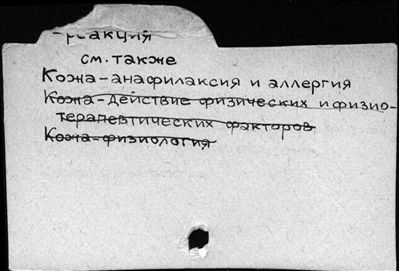 -реакция
см. также
Кожа-анафилаксия и аллергия
Кожа-действие физических и физио-
терапевтических факторов
Кожа-физиология